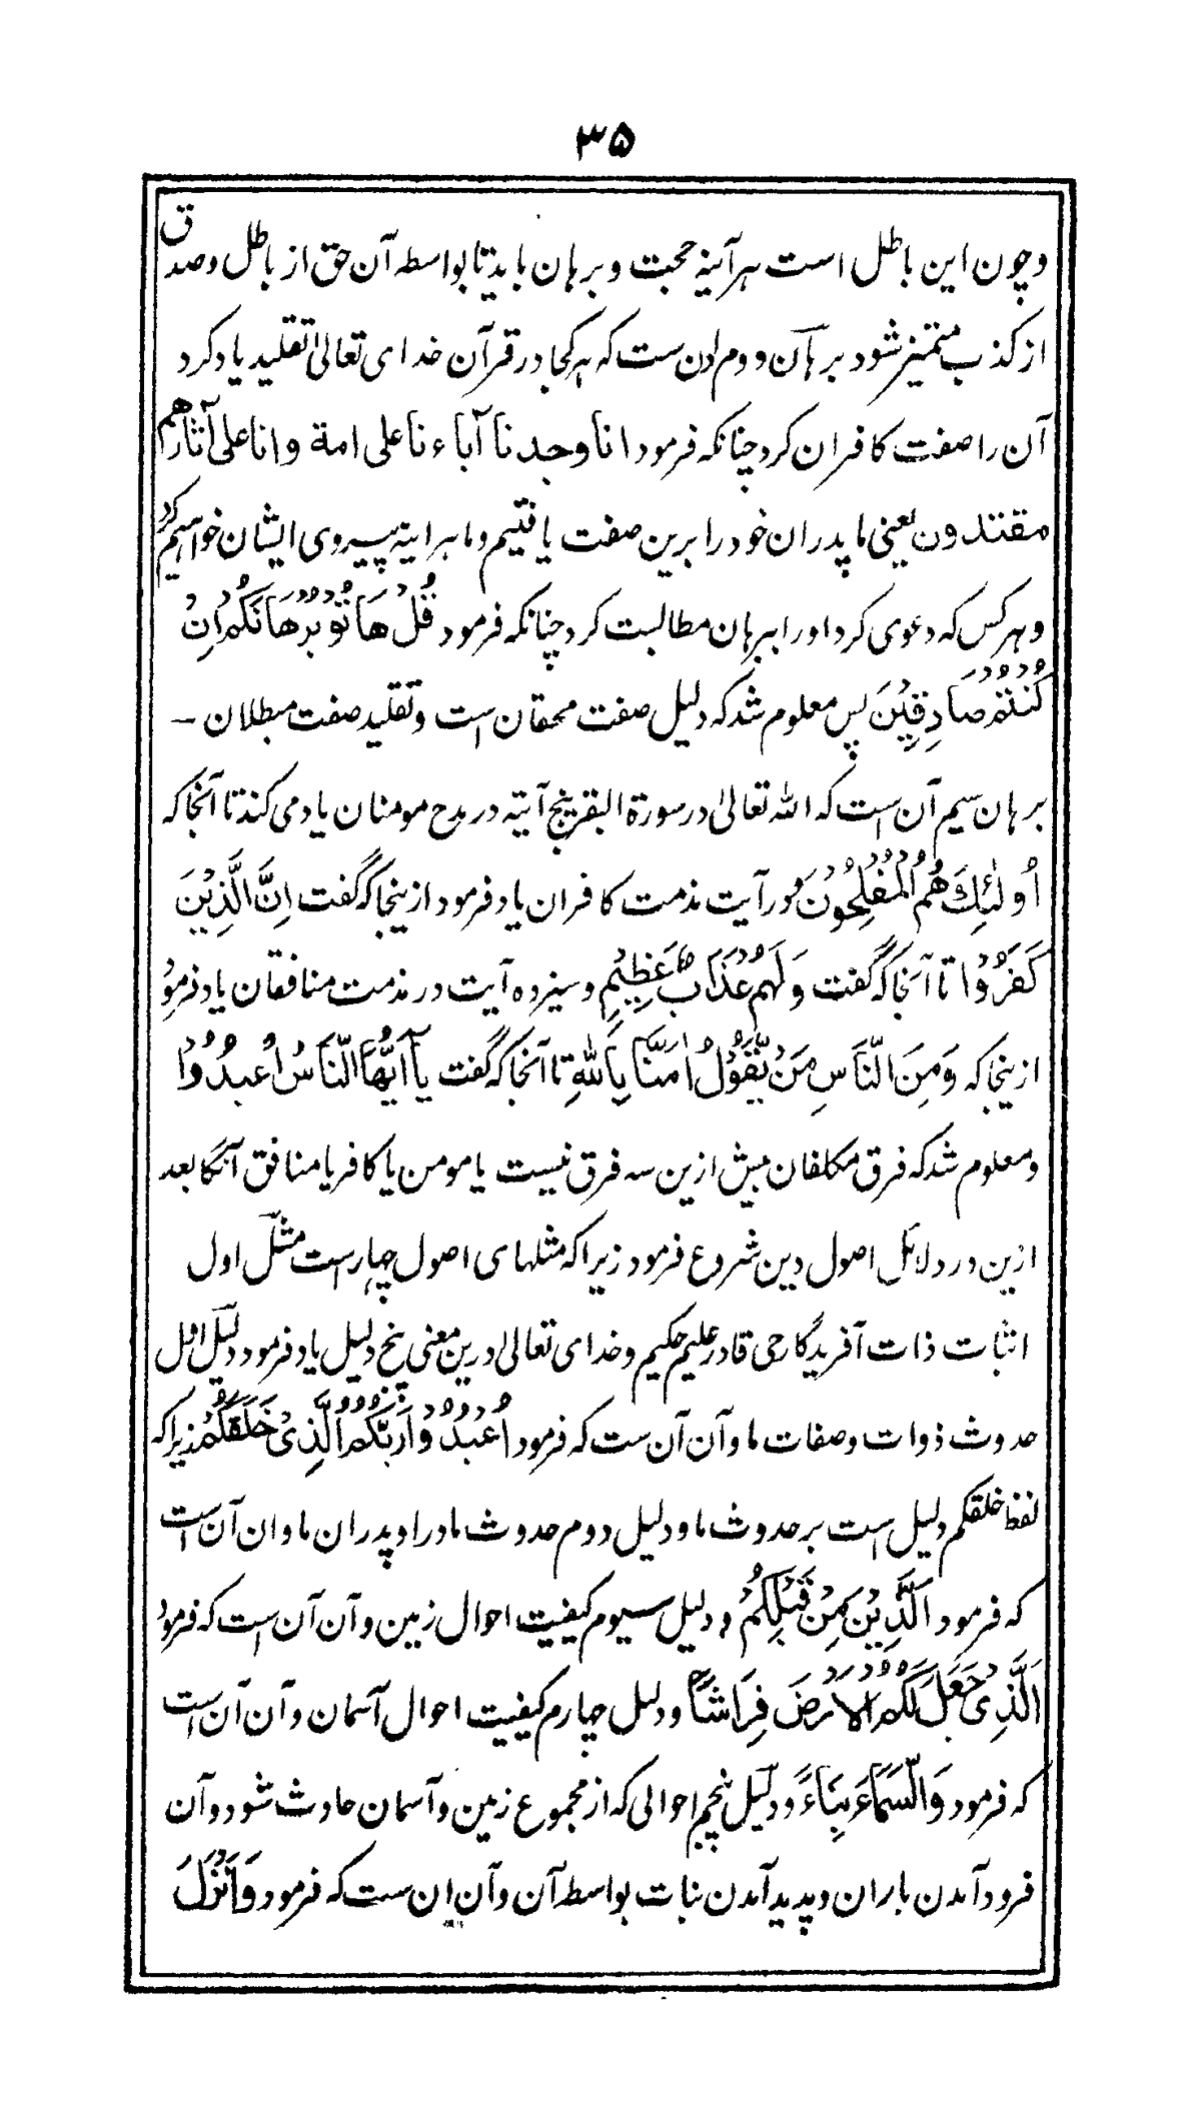 ۳۵
وچون این باطل است هرآئینه حجت و برهان باید تا بواسطه آن حق از باطل وصدق
از کذب متمیز شود برهان دوم آن ست که هر کجا در قرآن خدای تعالیٰ تقلید یاد کرد
آن را صفت کافران کرد چنانکه فرمود انا وجدنا آباءنا علی امة وانا علی آثارهم
مقتدون یعنی ما پدران خود را برین صفت یافتیم و ما هراینه پیروی ایشان خواهیم کرد
و هر کس که دعوی کرد او را ببرهان مطالبت کرد چنانکه فرمود قُلْ هَاتُوْ بُرْهَانَكُمْ اِنْ
كُنْتُمْ صَادِقِيْنَ پس معلوم شد که دلیل صفت محقان است و تقلید صفت مبطلان –
برهان سیم آن است که الله تعالیٰ در سورة البقر پنج آیته در مدح مومنان یاد می کند تا آنجا که
اُولٰئِكَ هُمُ الْمُفْلِحُوْنَ دور آیت مذمت کافران یاد فرمود ازینجا که گفت اِنَّ الَّذِيْنَ
كَفَرُوْا تا آنجا که گفت وَلَهُمْ عَذَابٌ عَظِيْمٌ و سیزده آیت در مذمت منافقان یاد فرمود
ازینجا که وَمِنَ النَّاسِ مَنْ يَّقُوْلُ اٰمَنَّا بِاللّٰهِ تا آنجا که گفت يَآ اَيُّهَا النَّاسُ اعْبُدُوْا
و معلوم شد که فرق مکلفان بیش ازین سه فرق نیست یا مومن یا کافر یا منافق آنگا بعد
ازین در دلائل اصول دین شروع فرمود زیرا که مثلهای اصول چهارست مثل اول
اثبات ذات آفریدگار حی قادر علیم حکیم و خدای تعالی درین معنی پنج دلیل یاد فرمود دلیل اول
حدوث ذوات و صفات ما و آن آن ست که فرمود اُعْبُدُوْا رَبَّكُمُ الَّذِيْ خَلَقَكُمْ زیرا که
لفظ خلقکم دلیل است بر حدوث ما و دلیل دوم حدوث مادر او پدران ما وان آن است
که فرمود اَلَّذِيْنَ مِنْ قَبْلِكُمْ و دلیل سیوم کیفیت احوال زمین و آن آن است که فرمود
اَلَّذِيْ جَعَلَ لَكُمُ الْاَرْضَ فِرَاشًا و دلیل چهارم کیفیت احوال آسمان و آن آن است
که فرمود وَالسَّمَاءَ بِنَاءً و دلیل پنجم احوالی که از مجموع زمین و آسمان حادث شود و آن
فرود آمدن باران و پدید آمدن نبات بواسط آن و آن این ست که فرمود وَاَنْزَلَ